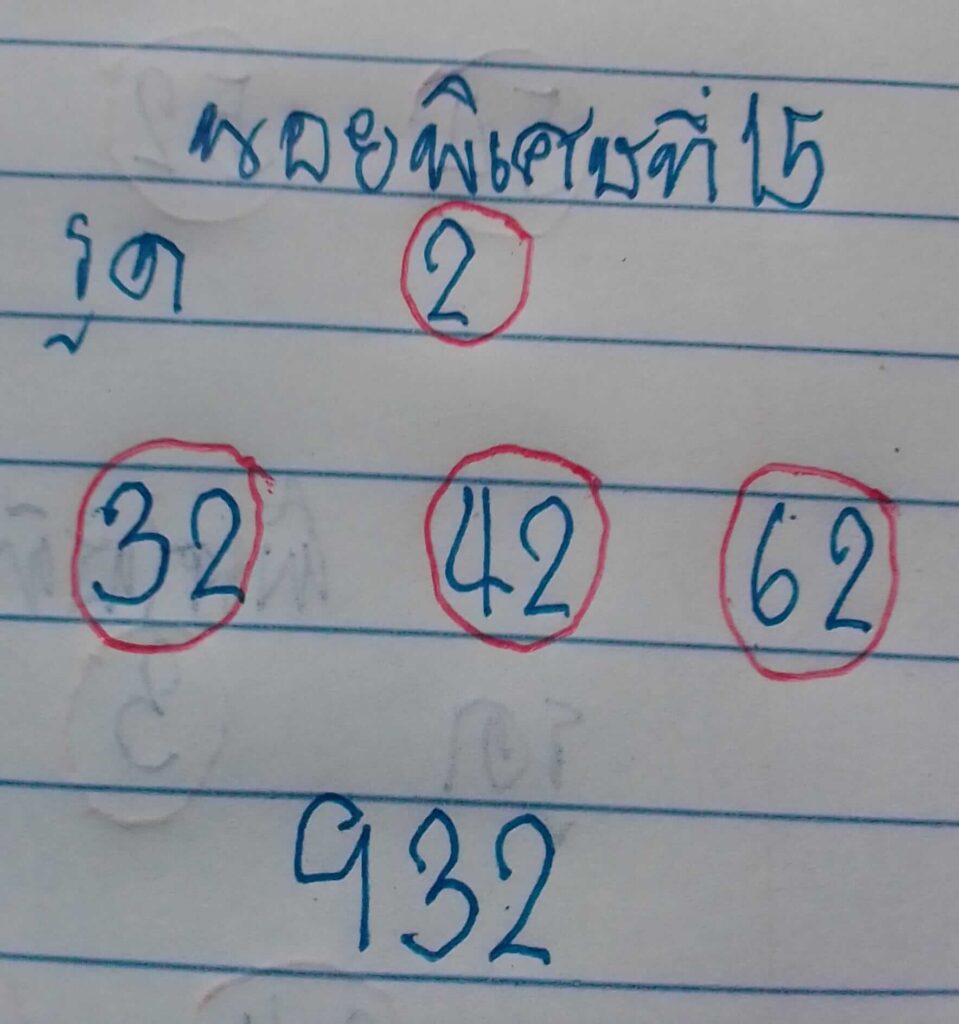 หอยพิเศษที่ 15
รูด 2
32 42 62
932